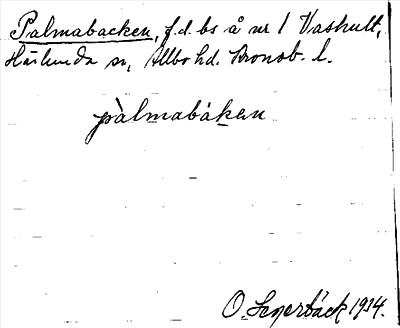 Palmabacken, f.d. bs å nr 1 Vashult,
Härlunda sn, Allbo hd. Kronob. l.
pàlmabákan
O. Lagerbäck 1934.